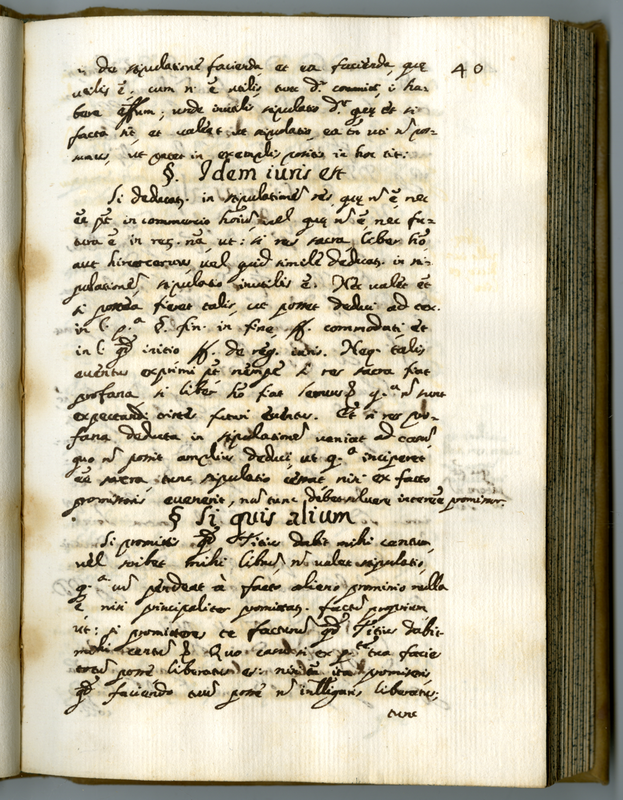 de stipulatione facienda et ea facienda, quę 40
utilis ē. cum n: ē utilis, tunc dr
bere effum; unde inutilis stipulatio dr quę et si
facta sit et valeat ut stipulatio, ea tn uti n pos-
sumus, ut patet in exemplis positis in hoc tit:
§. Idem iuris est
Si deducat. in stipulatione res, quę n ē nec
ēe pt in commercio hoīum vel quę n ē nec fu-
tura ē in rer. nā ut: si res sacra liber hō
aut hircocervus vel quid simile deducat. in sti-
pulatione stipulatio inutilis ē. Nec valet et
si postea fieret talis, ut posset deduci ad tex.
in l. pa. §. fin. in fine ff. commodati et
in l. qd initio ff. de reg. iuris. Neq. talis
eventus exprimi pt nempe si res sacra fiat
profana si liber hō fiat servus q.a n sunt
expectandi tristes futuri eventus. Et si res pro-
fana deducta in stipulatione veniat ad casum
quo n possit amplius deduci, ut q.a inciperet
ēe sacra tunc stipulatio cessat nisi ex facto
promissoris evenerit, nam tunc debet solvere interesse promissor.
§ Si quis alium
Si promitti qd Titius dabit mihi centum,
vel scribet mihi librum n valet stipulatio,
q.a cum pendeat à facto alieno prominio nulla
ē nisi principaliter promittat. factum proprium
ut: si promitteres te facturum qd Titius dabit
mihi centum Quo casu si ex p.te tua facie
totum posse liberatus es: nisi ita promiseris
qd faciendo tuum posse n intelligaris liberatus:
tunc